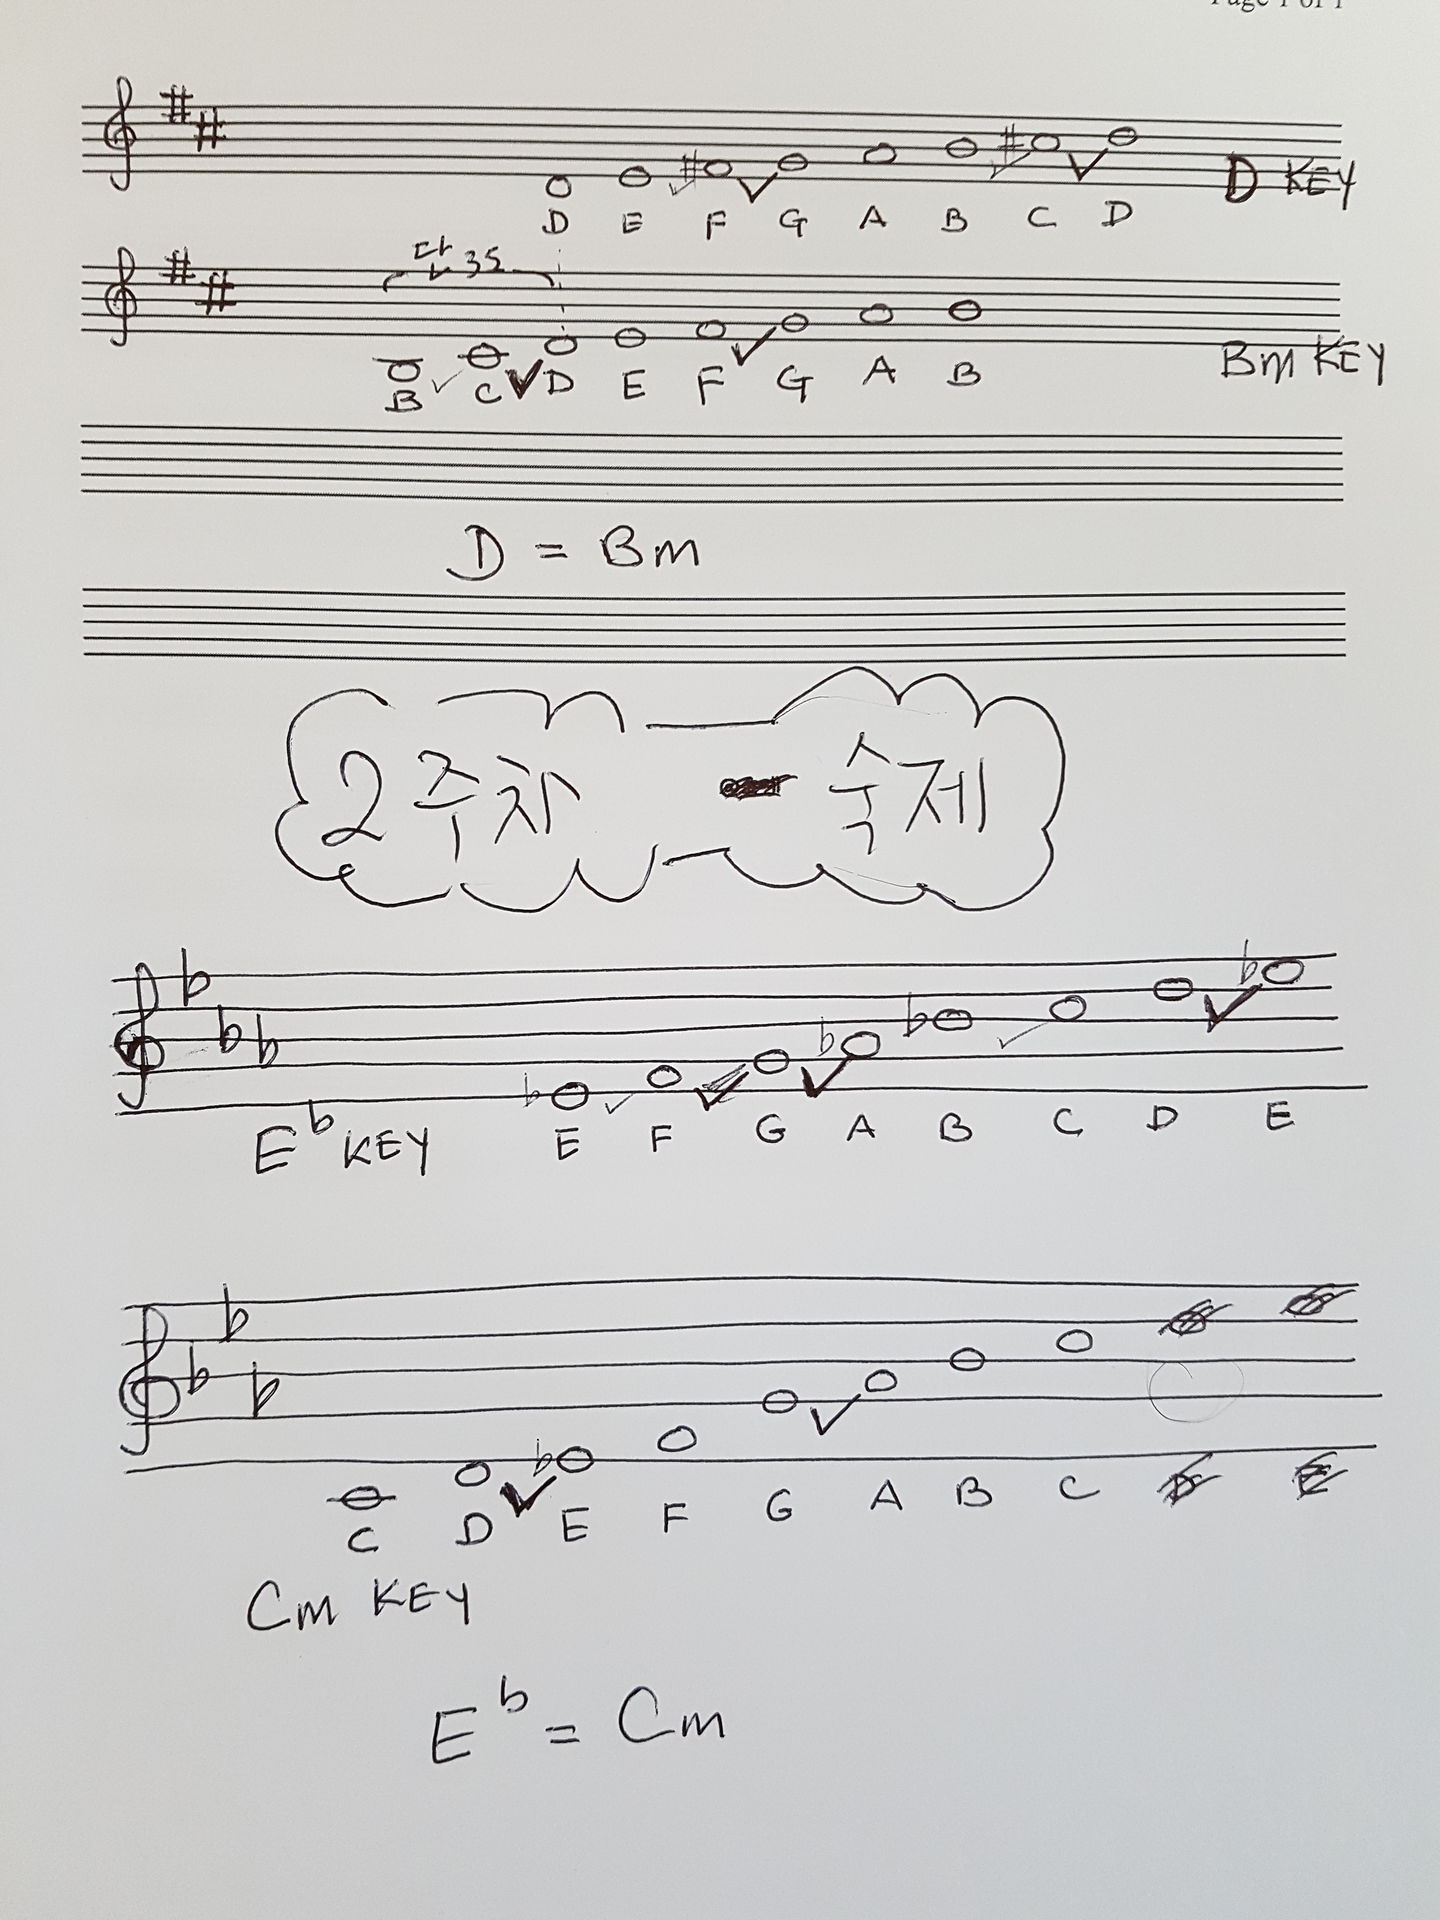 Page 1 of 1
D E F G A B C D
D KEY
단35
B C D E F G A B
Bm KEY
D = Bm
2주차 숙제
E♭ KEY
E F G A B C D E
C D E F G A B C
Cm KEY
E♭ = Cm